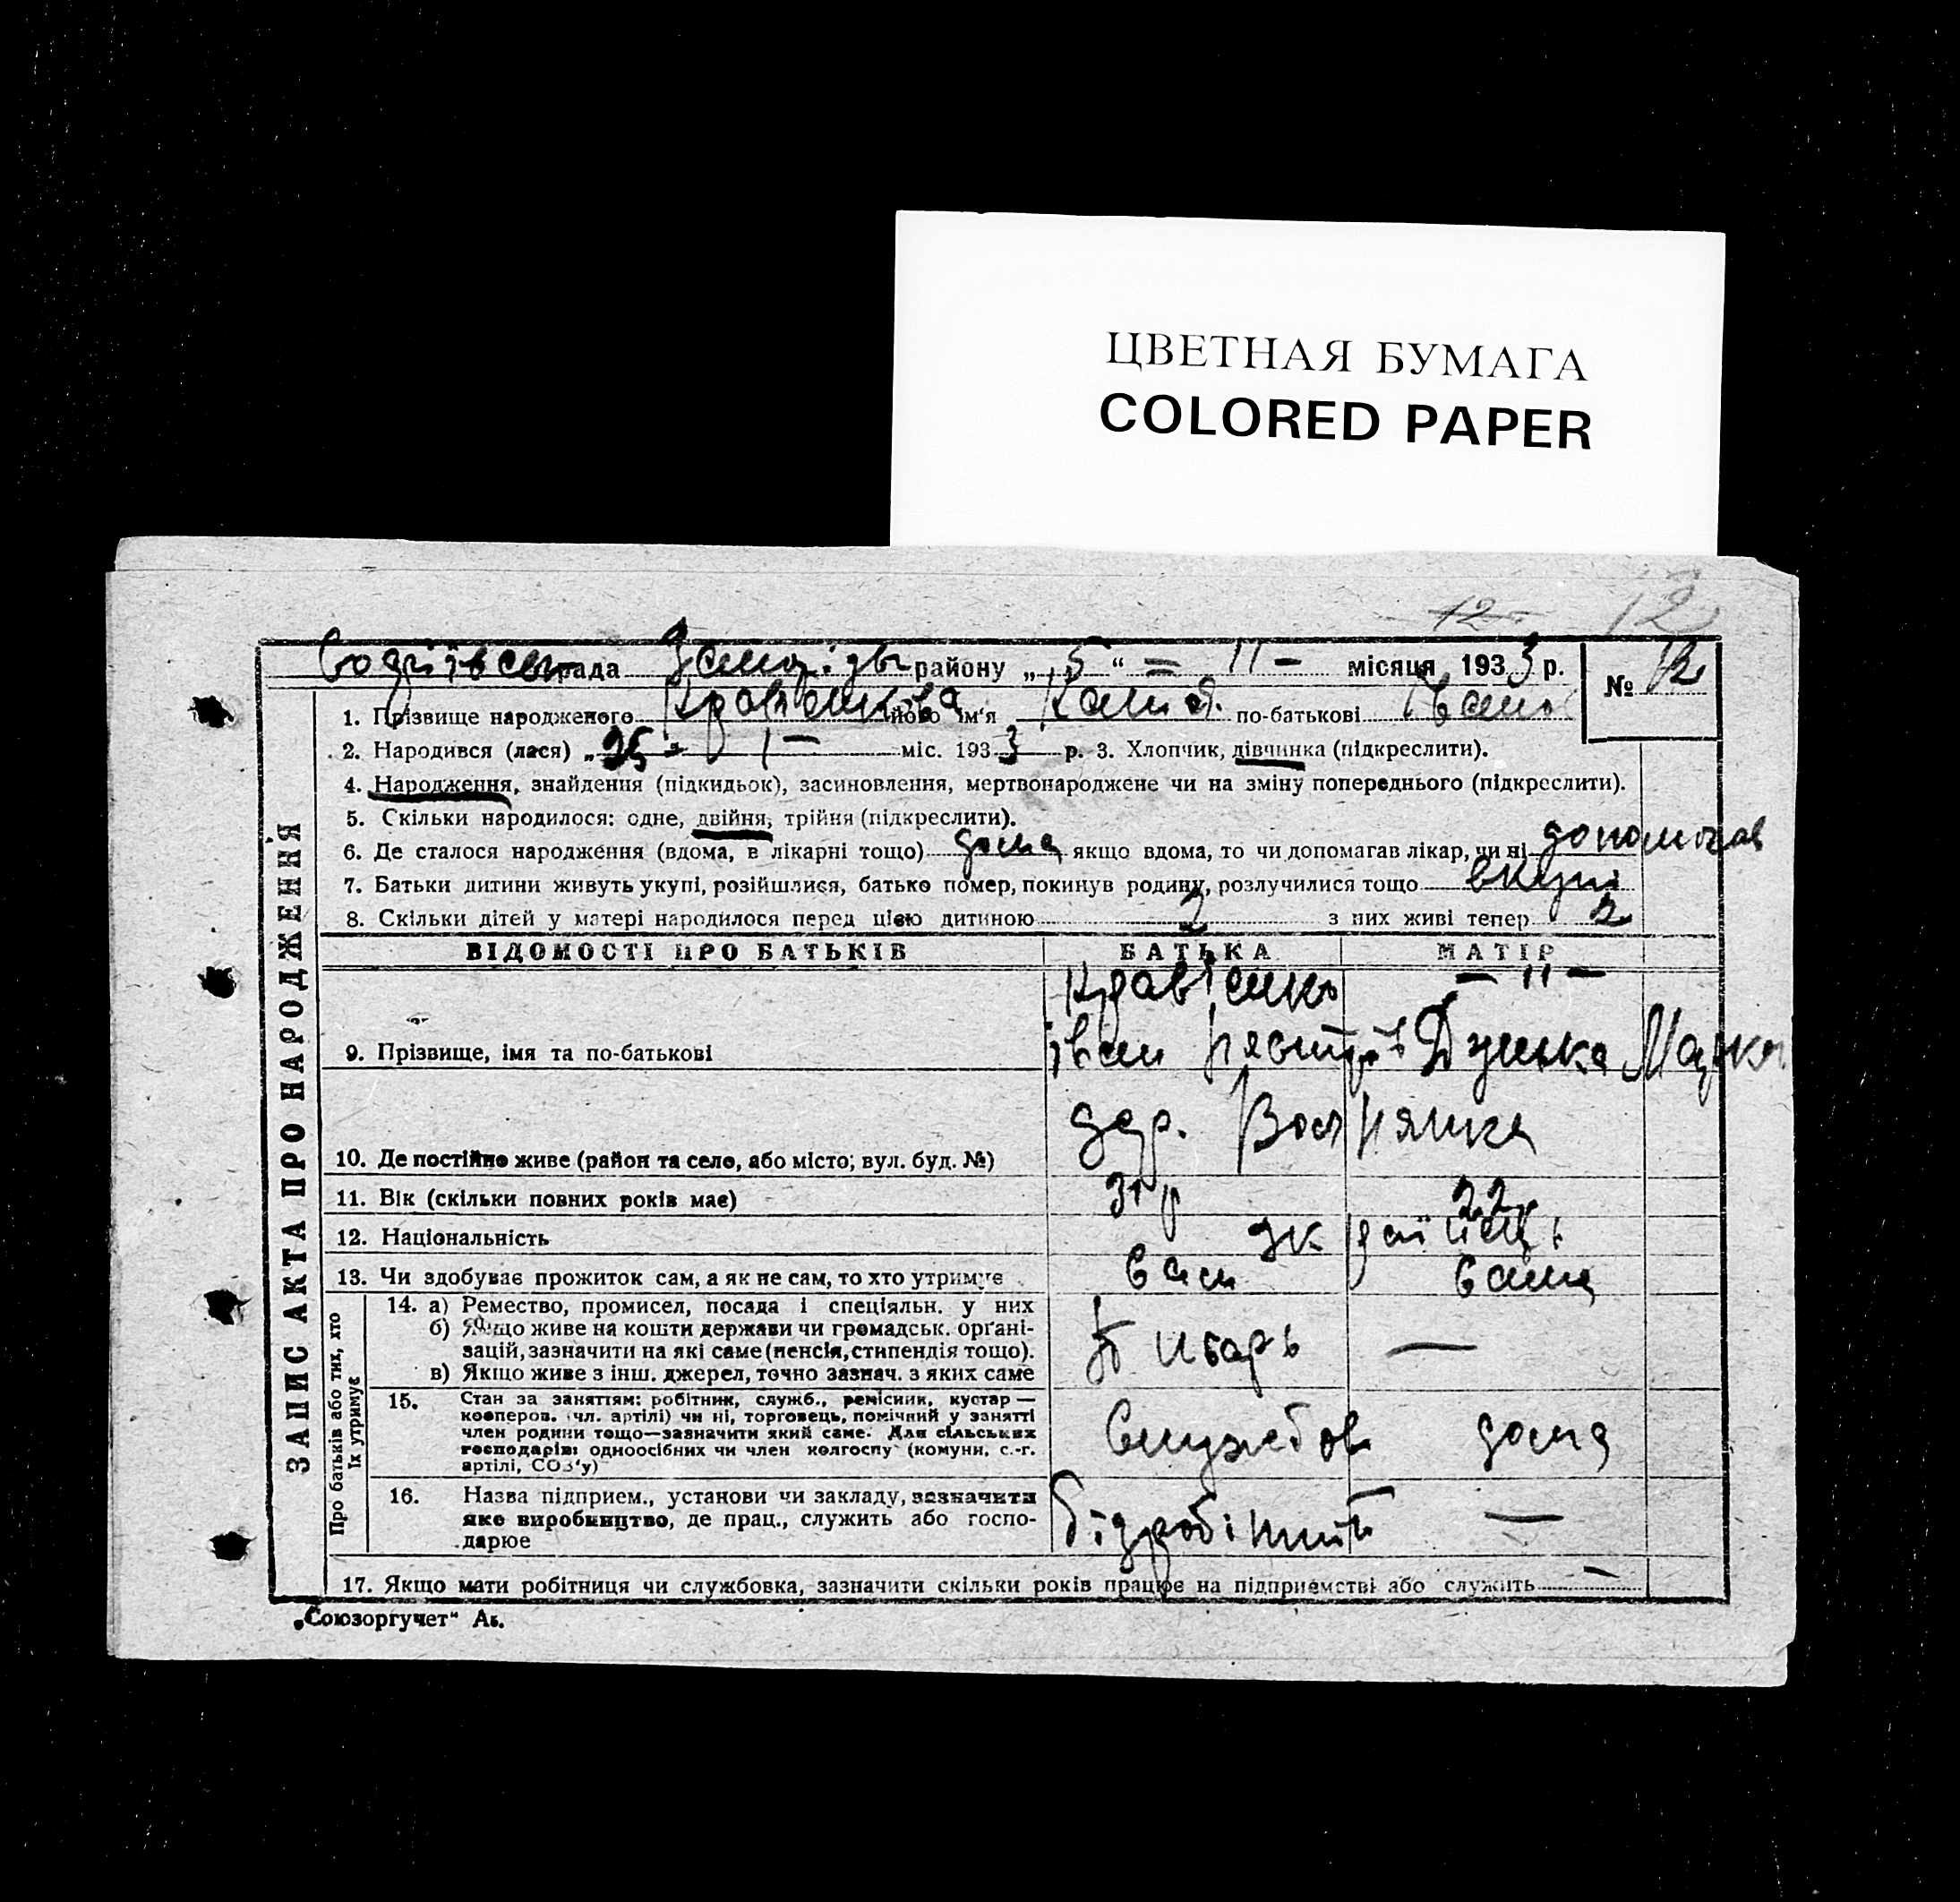 ЦВЕТНАЯ БУМАГА
COLORED PAPER
12 12
рада району „5“ — II — місяця 1933 р. № 12
1. Прізвище народженого Кравченкова його ім'я по-батькові Іван
2. Народився (лася) „25 I — міс. 1933 р. 3. Хлопчик, дівчинка (підкреслити).
4. Народження, знайдення (підкидьок), засиновлення, мертвонароджене чи на зміну попереднього (підкреслити).
5. Скільки народилося: одне, двійня, трійня (підкреслити).
6. Де сталося народження (вдома, в лікарні тощо) дома якщо вдома, то чи допомагав лікар, чи ні допомогав
7. Батьки дитини живуть укупі, розійшлися, батько помер, покинув родину, розлучилися тощо вкупі
8. Скільки дітей у матері народилося перед цією дитиною 2 з них живі тепер 2
ВІДОМОСТІ ПРО БАТЬКІВ БАТЬКА МАТІР
— II —
9. Прізвище, імя та по-батькові Іван Дунька Марков
10. Де постійно живе (район та село, або місто; вул. буд. №) дер.
11. Вік (скільки повних років має) 31 р 22
12. Національність українець
13. Чи здобуває прожиток сам, а як не сам, то хто утримує сам сама
Про батьків або тих, хто їх утримує
14. а) Ремество, промисел, посада і спеціяльн. у них
б) Якщо живе на кошти держави чи громадськ. органі-
зацій, зазначити на які саме (пенсія, стипендія тощо).
в) Якщо живе з інш. джерел, точно зазнач. з яких саме
—
15. Стан за заняттям: робітник, служб., ремісник, кустар —
коoперов. (чл. артілі) чи ні, торговець, помічний у занятті
член родини тощо—зазначити який саме. Для сільських
господарів: одноосібних чи член колгоспу (комуни, с.-г.
артілі, СОЗ'у)
Службов дома
16. Назва підприєм., установи чи закладу, зазначити
яке виробництво, де прац., служить або госпо-
дарює
—
17. Якщо мати робітниця чи службовка, зазначити скільки років працює на підприємстві або служить —
ЗАПИС АКТА ПРО НАРОДЖЕННЯ
„Союзоргучет“